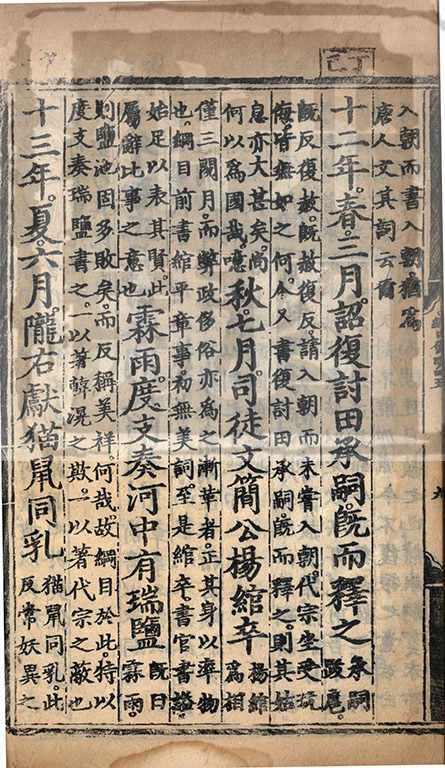 丁巳
入朝而書入朝。猶爲
唐人文其詞云爾
十二年。春。三月。詔復討田承嗣。旣而釋之
承嗣
跋扈。
旣反復赦。旣赦復反。請入朝而未嘗入朝。代宗坐受抗
侮。皆無如之何。今又書復討田承嗣。旣而釋之。則其姑
息亦大甚矣。尚
何以爲國哉。噫
秋。七月。司徒文簡公楊綰卒
楊綰
爲相
僅三閱月。而弊政侈俗亦爲之漸革者。正其身以率物
也。綱目前書綰平章事。初無美詞。至是綰卒。書官書謚。
始足以表其賢。此
屬辭比事之意也
霖雨。度支奏河中有瑞鹽
旣曰
霖雨。
則鹽池固多敗矣。而反稱美祥。何哉。故綱目於此。特以
度支奏瑞鹽書之。一以著韓滉之欺。一以著代宗之蔽也
十三年。夏。六月。隴右獻猫鼠同乳
猫鼠同乳。此
反常妖異之